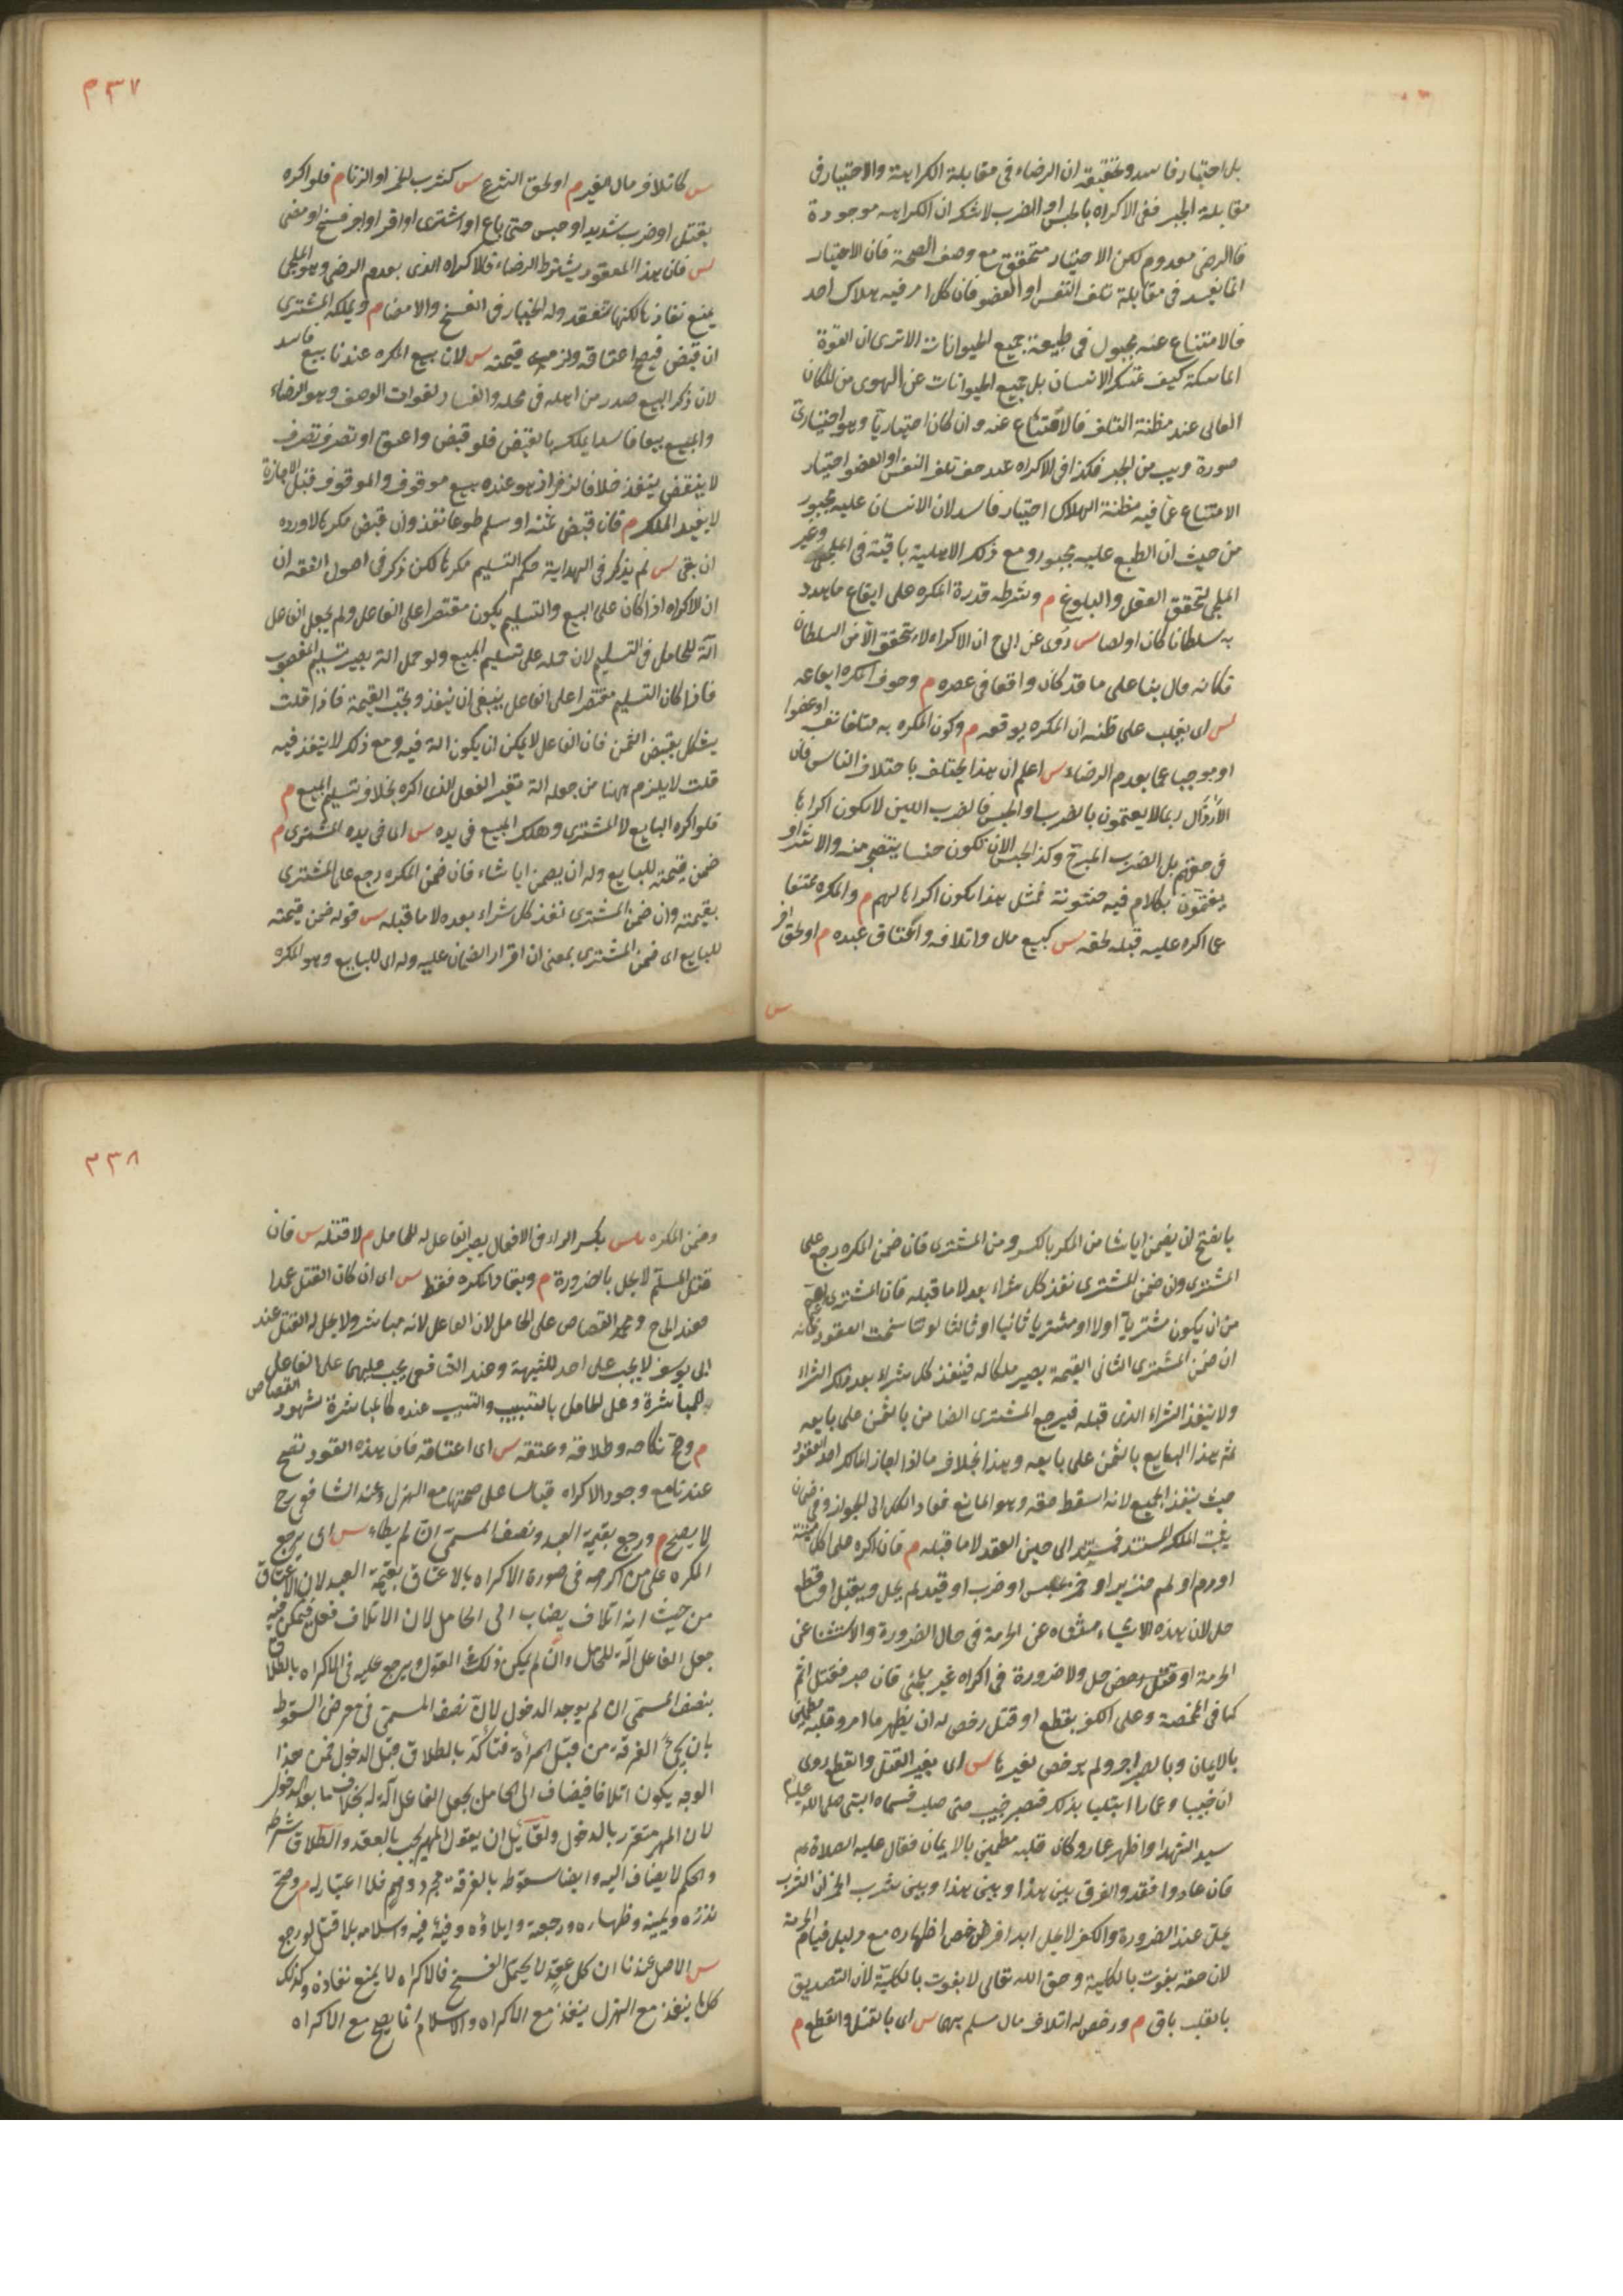 بل اختيار فاسد وتحقيقه ان الرضاء في مقابلة الكراهة والاختيار في
مقابلة الجبر ففي الاكراه بالحبس او الضرب لا شك ان الكراهة موجودة
فالرضى معدوم لكن الاختيار متحقق مع وصف الصحة فان الاختيار
انما يفسد في مقابلة تلف النفس او العضو فان كل امر فيه هلاك احد
فالامتناع عنه مجبول في طبيعة جميع الحيوانات الا ترى ان القوة
الماسكة كيف تمسك الانسان بل جميع الحيوانات عن الهوى من المكان
العالي عند مظنة التلف فالامتناع عنه وان كان اختياريا وهو اختياري
صورة قريب من الجبر فكذا في الاكراه عند خوف تلف النفس او العضو اختيار
الامتناع عما فيه مظنة الهلاك اختيار فاسد لان الانسان عليه مجبور
من حيث ان الطبع عليه مجبور ومع ذلك الاهلية باقية في الملجي وغير
الملجي لتحقق العقل والبلوغ م وشرطه قدرة المكره على ايقاع ما هدد
به سلطانا كان او لصا س روى عن ابي ح ان الاكراه لا يتحقق الا من السلطان
فكانه قال بناء على ما قد كان واقعا في عصره م وخوف المكره ايقاعه
س اى يغلب على ظنه ان المكره يوقعه م وكون المكره به متلفا نفسا او عضوا
او موجبا غما يعدم الرضاء س اعلم ان هذا يختلف باختلاف الناس فان
الارذال ربما لا يغتمون بالضرب او الحبس فالضرب اللين لا يكون اكراها
في حقهم بل الضرب المبرح وكذا الحبس الا ان يكون حبسا يتضجر منه والاشراف
يغتمون بكلام فيه خشونة فمثل هذا يكون اكراها لهم م والمكره ممتنعا
عما اكره عليه قبله لحقه س كبيع ماله واتلافه واعتاق عبده م او لحق آخر
س
٣٣٧
س كاتلاف مال الغير م او لحق الشرع س كشرب الخمر او الزنا م فلو اكره
بقتل او ضرب شديد او حبس حتى باع او اشترى او اقر او اجر فسخ او امضى
س فان هذا العقود يشترط الرضاء فالاكراه الذي يعدم الرضى وهو الملجي
يمنع نفاذها لكنها تنعقد وله الخيار في الفسخ والامضاء م ويملكه المشترى
ان قبض فيصح اعتاقه ولزمه قيمته س لان بيع المكره عندنا بيع فاسد
لان ركن البيع صدر من اهله في محله والفساد لفوات الوصف وهو الرضاء
والمبيع بيعا فاسدا يملك بالقبض فلو قبض واعتق او تصرف تصرف
لا ينقض ينفذ خلافا لزفر اذ هو عنده بيع موقوف والموقوف قبل الاجازة
لا يفيد الملك م فان قبض ثمنه او سلم طوعا نفذ وان قبض مكرها لا ورده
ان بقى س لم يذكر في الهداية حكم التسليم مكرها لكن ذكر في اصول الفقه ان
ان الاكراه اذا كان على البيع والتسليم يكون مقتصرا على الفاعل ولم يجعل الفاعل
آلة للحامل في التسليم لان حمله على تسليم المبيع ولو جعل آلة يصير تسليم المغصوب
فاذا كان التسليم مقتصرا على الفاعل ينبغي ان ينفذ ويجب القيمة فاذا قلت
يشكل بقبض الثمن فان الفاعل لا يمكن ان يكون آلة فيه ومع ذلك لا ينفذ فيه
قلت لا يلزم ههنا من جعله آلة تغير الفعل الذي اكره بخلاف تسليم المبيع م
فلو اكره البايع لا المشترى وهلك المبيع في يده س اى في يد المشترى م
ضمن قيمته للبايع وله ان يضمن ايا شاء فان ضمن المكره رجع على المشترى
بقيمته وان ضمن المشترى نفذ كل شراء بعده لا ما قبله س قوله ضمن قيمته
للبايع اى ضمن المشترى بمعنى ان اقرار الضمان عليه وله اى للبايع وهو المكره
بالفتح ان يضمن ايا شاء من المكره بالكسر ومن المشترى فان ضمن المكره رجع على
المشترى وان ضمن المشترى نفذ كل شراء بعده لا ما قبله فان المشترى اعم
من ان يكون مشتريا اولا او مشتريا ثانيا او ثالثا لو تناسخت العقود فانه
ان ضمن المشترى الثاني القيمة يصير ملكا له فينفذ كل شراء بعد ذلك الشراء
ولا ينفذ الشراء الذي قبله فيرجع المشترى الضامن بالثمن على بايعه
ثم هذا البايع بالثمن على بايعه وهذا بخلاف ما اذا اجاز المالك احد العقود
حيث ينفذ الجميع لانه اسقط حقه وهو المانع فعاد الكل الى الجواز وفي ضمان
يثبت الملك المستند فيستند الى حين العقد لا ما قبله م فان اكره على اكل ميتة
او دم او لحم خنزير او خمر بحبس او ضرب او قيد لم يحل وبقتل او قطع
حل لان هذه الاشياء مستثناة عن الحرمة في حال الضرورة والاستثناء عن
الحرمة حل ولا ضرورة في اكراه غير ملجئ فان صبر فقتل اثم
كما في المخمصة وعلى الكفر بقطع او قتل رخص له ان يظهر ما امر وقلبه مطمئن
بالايمان وبالصبر اجر ولم يرخص بغيرها س اى بغير القتل والقطع روى
ان خبيبا وعمارا ابتليا بذلك فصبر خبيب حتى صلب فسماه النبي صلى الله عليه
سيد الشهدا واظهر عمار وكان قلبه مطمئن بالايمان فقال عليه الصلاة
فان عادوا فعد والفرق بين هذا وبين هذا وبين شرب الخمر ان الشرب
يحل عند الضرورة والكفر لا يحل ابدا فرخص اظهاره مع دليل قيام الحرمة
لان حقه يفوت بالكلية وحق الله تعالى لا يفوت بالكلية لان التصديق
بالقلب باق م ورخص له اتلاف مال مسلم بهما س اى بالقتل والقطع م
٣٣٨
وضمن المكره س بكسر الراء في الافعال يصير الفاعل آلة للحامل م لا قتله س فان
قتل المسلم لا يحل بالضرورة م ويقاد المكره فقط س اى ان كان القتل عمدا
فعند ابي ح ومحمد القصاص على الحامل لان الفاعل لانه مباشر ولا يحل له القتل عند
ابي يوسف لا يجب على احد للشبهة وعند الشافعي يجب عليهما على الفاعل
بالمباشرة وعلى الحامل بالتسبيب والتسبيب عنده كالمباشرة لشهود القصاص
م وصح نكاحه وطلاقه وعتقه س اى اعتاقه فان هذه العقود تصح
عندنا مع وجود الاكراه قياسا على صحتها مع الهزل وعند الشافعي رح
لا يصح م ورجع بقيمة العبد ونصف المسمى ان لم يطاء س اى يرجع
المكره على من اكرهه في صورة الاكراه بالاعتاق بقيمة العبد لان الاعتاق
من حيث انه اتلاف يضاف الى الحامل لان الاتلاف فعل فيمكن فيه
جعل الفاعل آلة للحامل وان لم يمكن ذلك القول ويرجع عليه في الاكراه بالطلاق
بنصف المسمى ان لم يوجد الدخول لان نصف المسمى في معرض السقوط
بان يجئ الفرقة من قبل المرأة فتأكد بالطلاق قبل الدخول فمن هذا
الوجه يكون اتلافا فيضاف الى الحامل بجعل الفاعل آلة له بخلاف ما بعد الدخول
لان المهر متقرر بالدخول ولقائل ان يقول المهر يجب بالعقد والطلاق شرطه
والحكم لا يضاف اليه وايضا سقوطه بالفرقة مجرد وهم فلا اعتبار له م وصح
نذره ويمينه وظهاره ورجعته وايلاؤه وفيئه فيه واسلامه بلا قتل لو رجع
س الاصل عندنا ان كل عقد لا يحتمل الفسخ فالاكراه لا يمنع نفاذه وكذلك
كل ما ينفذ مع الهزل ينفذ مع الاكراه والاسلام انما يصح مع الاكراه